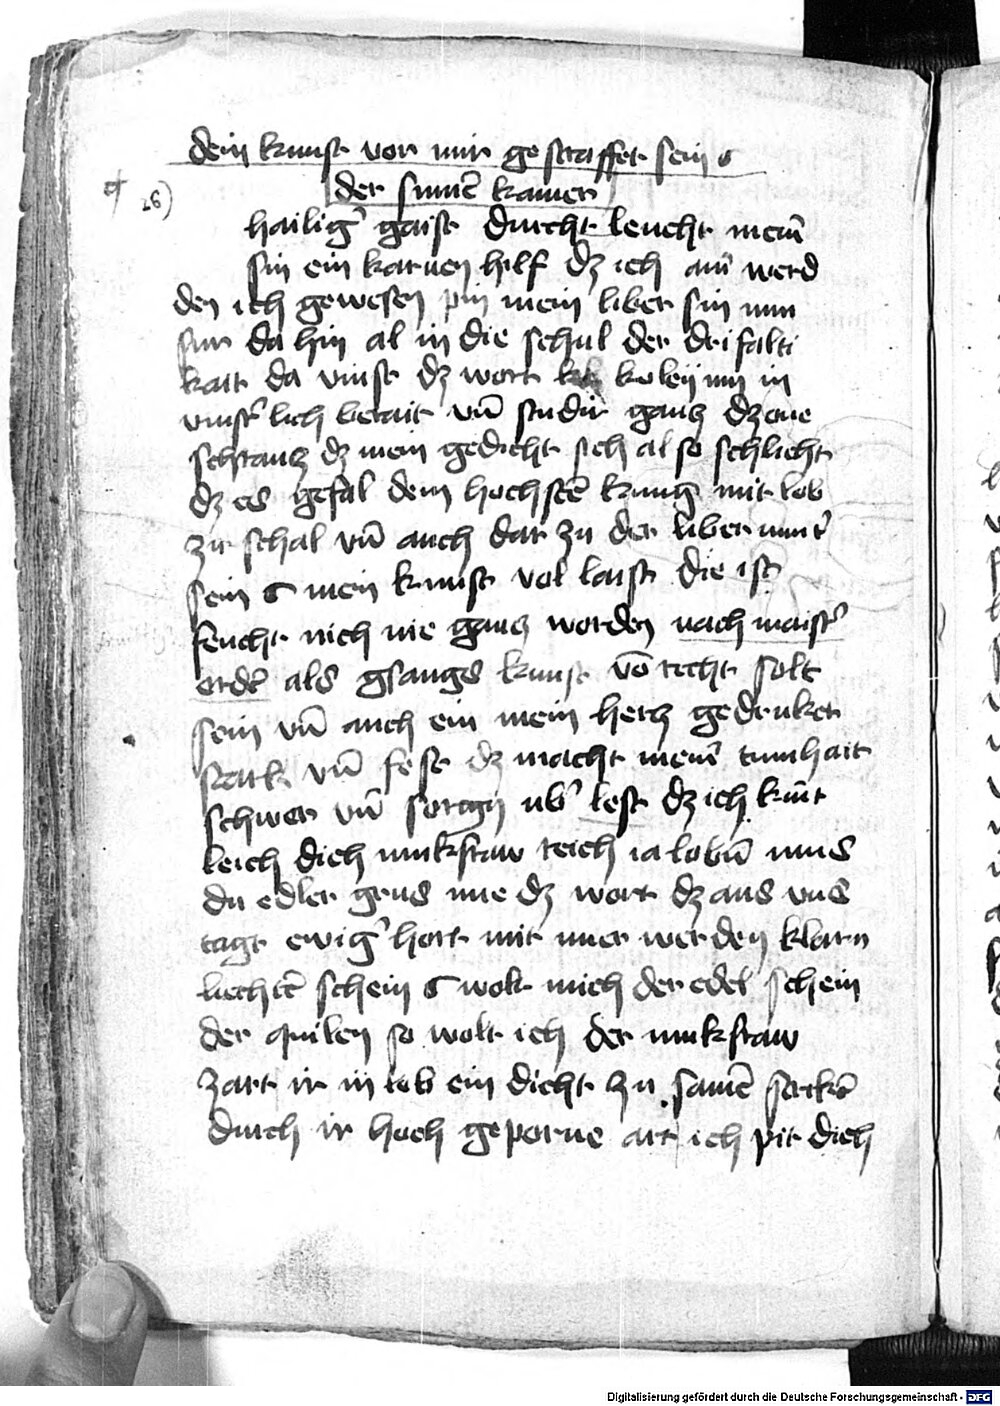 dein kunst vor mir gestraffet sein
der sinnē kamer
26)
hailig' gaist durcht leucht mein̄
sin ein karnen hilf dz ich ain̄ werd
den ich gewesen pin mein liber sin nun
sur da hin al in die schul der drifalti
kait da vinst dz wort kolen nn in
vinst'lich berait vn̄ studir gancz dz one
schrancz dz mein gedicht sich also schlicht
dz es gefal dem hochstē kunig mit lob
zir schal vn̄ auch dar zu der liber mut'
sein mein kunst vol laist die ist
feucht nich nie gancz worden nach maist'
ordē als gsangs kunst vō recht solt
sein vn̄ auch ein mein hercz gedruket
stark vn̄ fest dz macht meinē tumhait
schwer vn̄ sorgn ub' lest dz ich kun̄t
leich dich iunkfraw reich ia lobn̄ mus
du edler grus nue dz wort dz aus vns
tagt ewig' hort mit iner werden klarn
liechtē schein wolt mich der edel schein
der quilen so wolt ich der iunkfraw
zart ir in lob ein dicht zu samē strikē
durch ir hoch geporne art ich pit dich
Digitalisierung gefördert durch die Deutsche Forschungsgemeinschaft - DFG